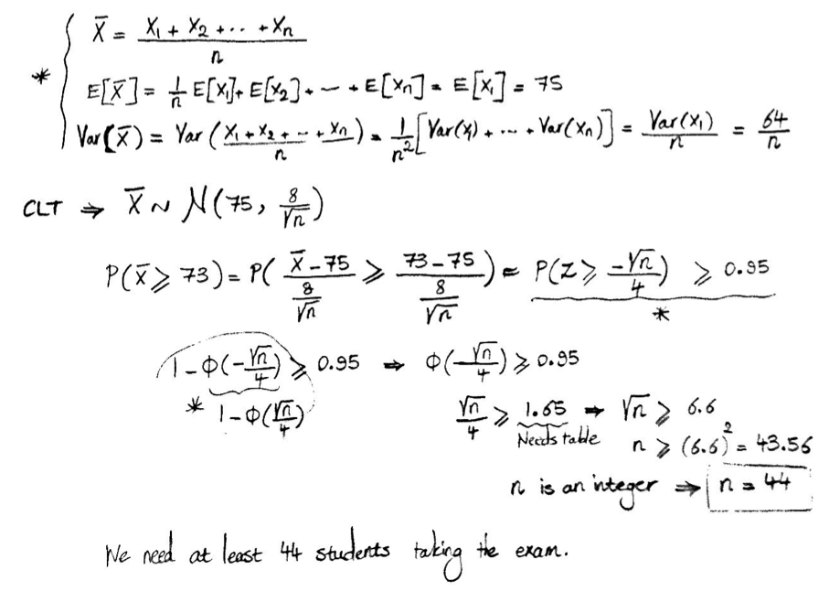 * X̄ = (X₁ + X₂ + ··· + Xn)/n
E[X̄] = 1/n E[X₁]+ E[X₂]+ ··· + E[Xn] = E[X₁] = 75
Var(X̄) = Var((X₁+X₂+ ··· + Xn)/n) = 1/n² [Var(X₁) + ··· + Var(Xn)] = Var(X₁)/n = 64/n
CLT ⇒ X̄ ~ N(75, 8/√n)
P(X̄ ⩾ 73) = P((X̄ - 75)/(8/√n) ⩾ (73-75)/(8/√n)) = P(Z ⩾ -√n/4) ⩾ 0.95
*
1-Φ(-√n/4) ⩾ 0.95 ⇒ Φ(√n/4) ⩾ 0.95
* 1-Φ(√n/4)
√n/4 ⩾ 1.65 ⇒ √n ⩾ 6.6
Needs table n ⩾ (6.6)² = 43.56
n is an integer ⇒ n = 44
We need at least 44 students taking the exam.